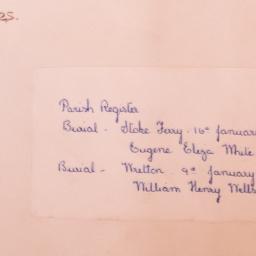 25.
Parish Register
Burial - Stoke Ferry. 16th January
Eugene Eliza White
Burial - Wretton 9th January
William Henry Wells